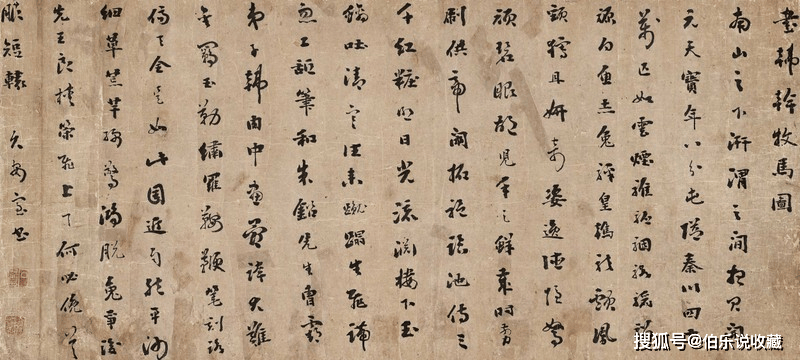 書韓幹牧馬圖
南山之下汧渭之間想見開
元天寶年八分屯隘秦川四十
萬匹如雲煙騅駓駰駱驪騮
騵白魚赤兔騂皇鶾龍顱鳳
頸獰且妍奇姿逸德隱駑
頑碧眼胡兒手足鮮歲時剪
刷供帝閑柘袍臨池侍三
千紅粧照日光流淵樓下玉
螭吐清寒往來蹙蹋生飛湍
衆工舐筆和朱鉛先生曹霸
弟子韓肉中畫骨誇尤難
金羈玉勒繡羅鞍鞭箠刻烙
傷天全不如此圖近自然平沙
細草荒芊綿驚鴻脫兔爭後
先王良挾策飛上天何必俛首
服短轅 書
搜狐号@伯乐说收藏